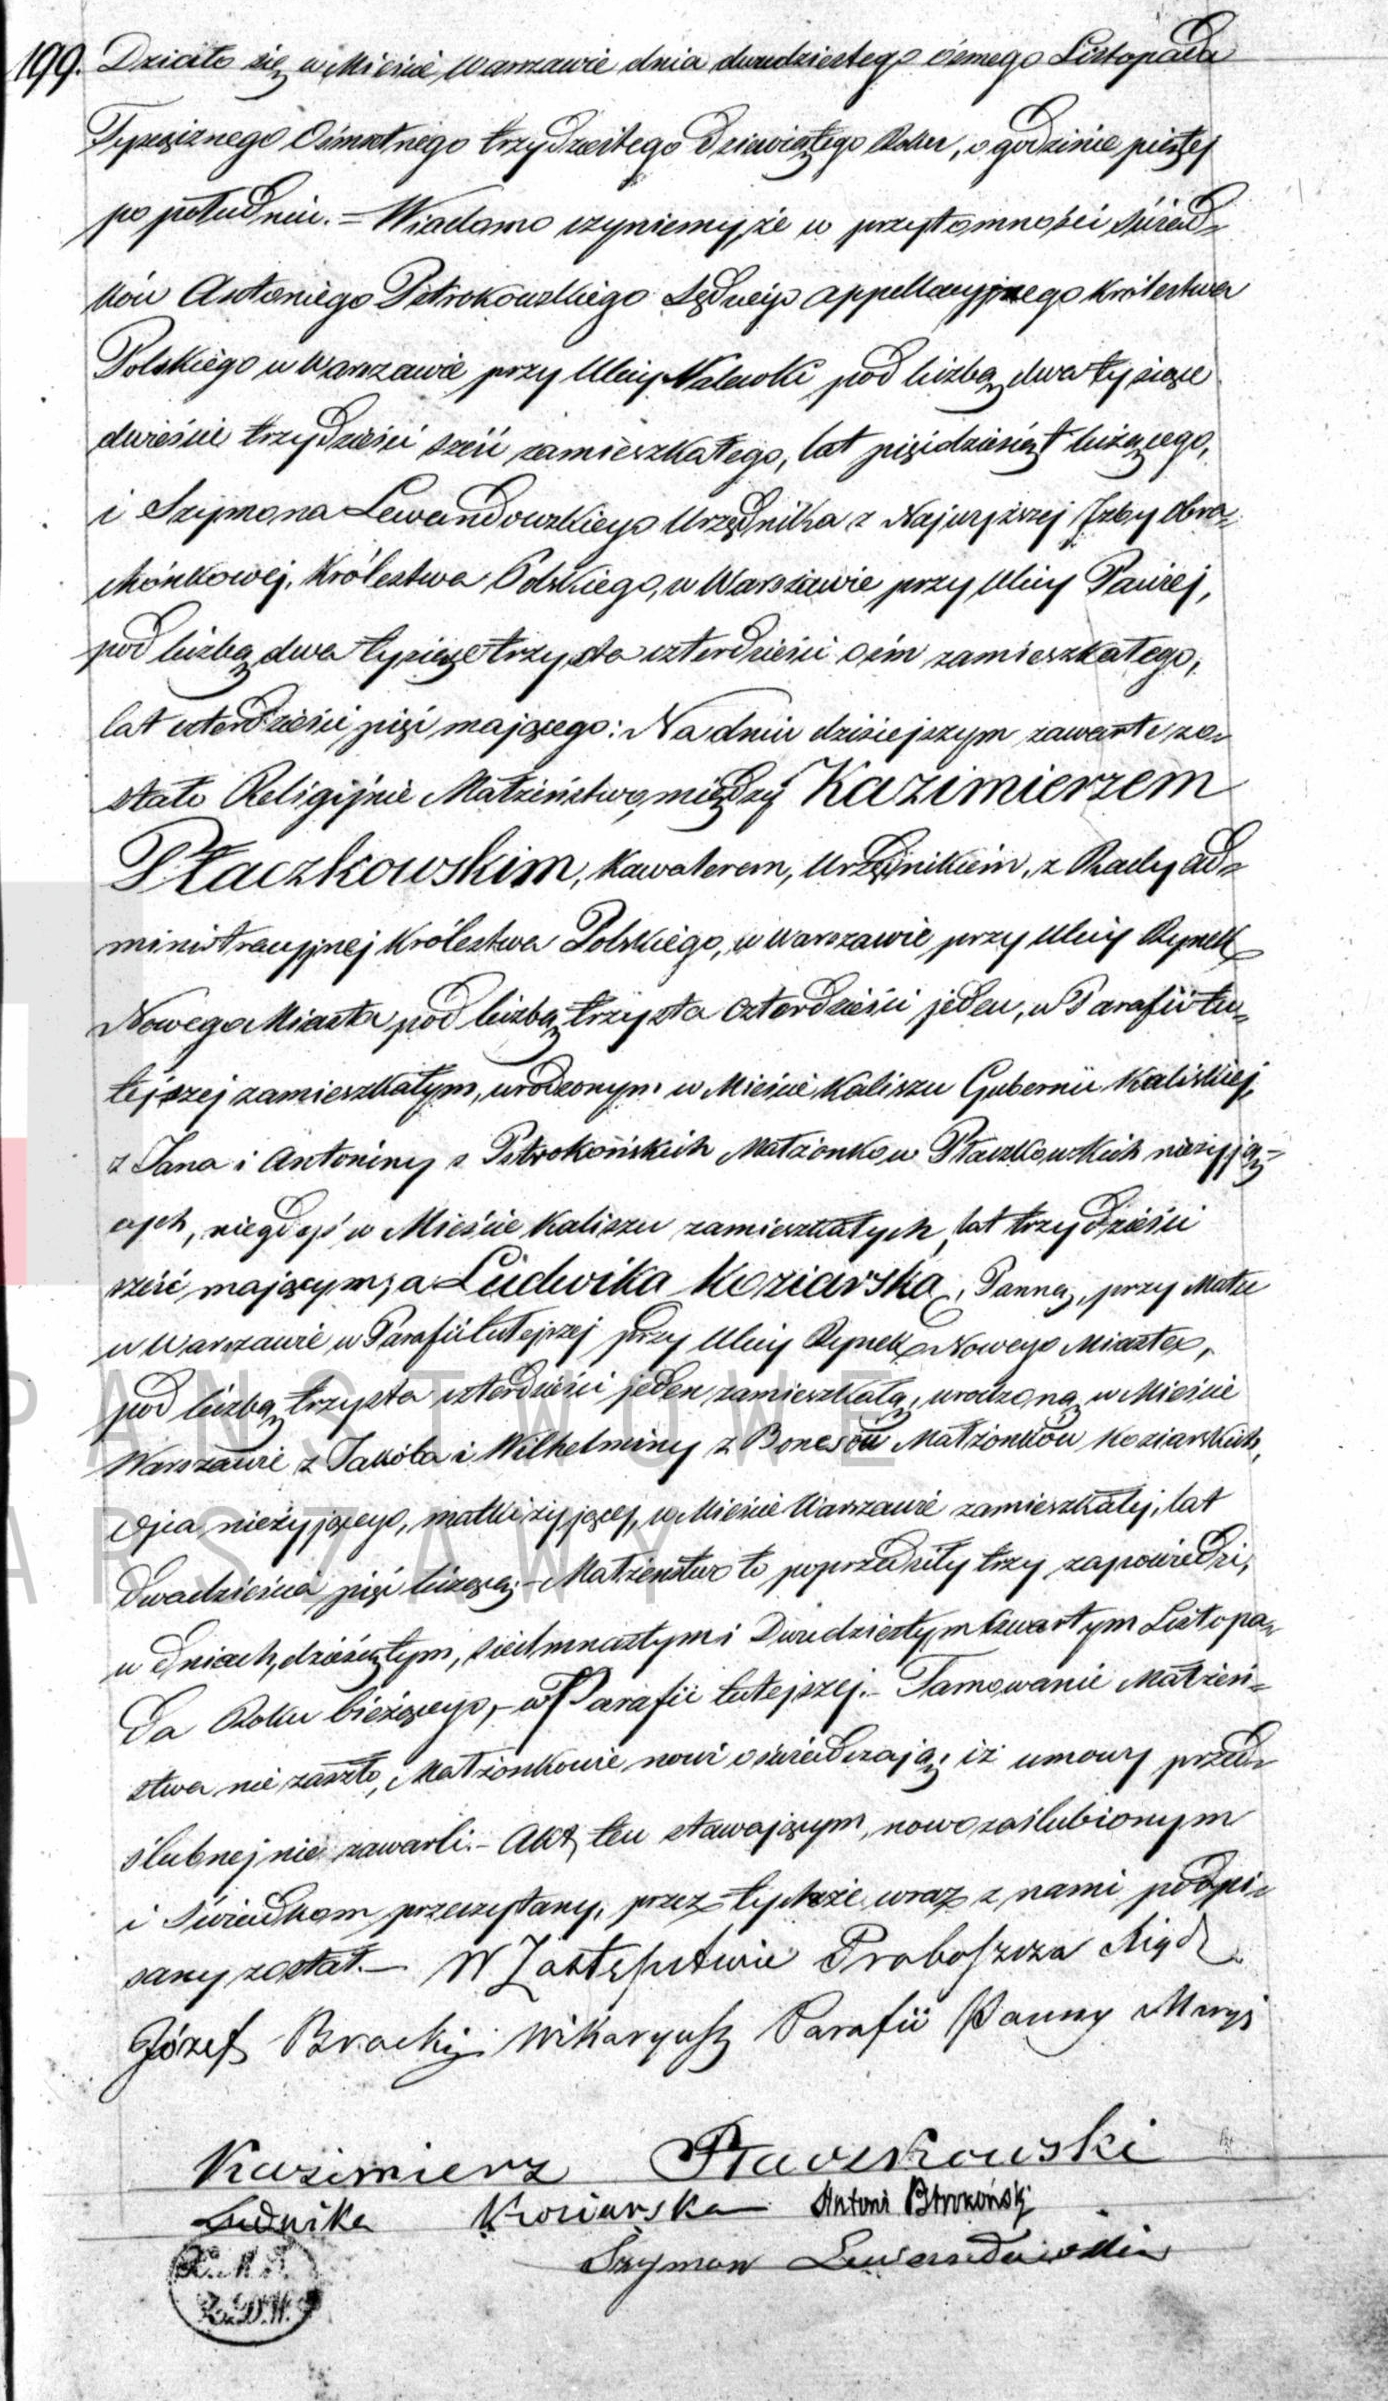 199. Działo się w Mieście Warszawie dnia dwudziestego ósmego Listopada
Tysiącznego Ośmsetnego trzydziestego dziewiątego Roku, o godzinie piątej
po południu. = Wiadomo czyniemy, że w przytomności świad-
ków Antoniego Pstrokowskiego Sędziego appellacyjnego Królestwa
Polskiego w Warszawie przy Ulicy Nalewki pod liczbą dwa tysiące
dwieście trzydzieści sześć zamieszkałego, lat pięćdziesiąt liczącego,
i Szymona Lewandowskiego Urzędnika z Najwyższej Izby Obra-
chónkowej, Królestwa Polskiego, w Warszawie przy Ulicy Pawiej,
pod liczbą dwa tysiące trzysta czterdzieści ośm zamieszkałego,
lat czterdzieści pięć mającego: Na dniu dzisiejszym zawarte zo-
stało Religijnie Małżeństwo, między Kazimierzem
Płaczkowskim, Kawalerem, Urzędnikiem, z Rady Ad-
ministracyjnej Królestwa Polskiego, w Warszawie przy Ulicy Rynek
Nowego Miasta pod liczbą trzysta czterdzieści jeden, w Parafii tu-
tejszej zamieszkałym, urodzonym w Mieście Kaliszu Gubernii Kaliskiej,
z Jana i Antoniny z Pstrokońskich Małżonków Płaczkowskich nieżyją-
cych, niegdyś w Mieście Kaliszu zamieszkałych, lat trzydzieści
sześć mającym; a Ludwiką Koziarską, Panną, przy Matce
w Warszawie w Parafii tutejszej przy Ulicy Rynek Nowego Miasta,
pod liczbą trzysta czterdzieści jeden zamieszkałą, urodzoną w Mieście
Warszawie z Jakóba i Wilhelminy z Bonesów Małżonków Koziarskich,
Ojca nieżyjącego, matki żyjącej, w Mieście Warszawie zamieszkałej, lat
dwadzieścia pięć liczącą; – Małżeństwo to poprzedziły trzy zapowiedzi,
w dniach, dziesiątym, siedmnastym i Dwudziestym Czwartym Listopa-
da Roku bieżącego, – w Parafii tutejszej. – Tamowanie Małżeń-
stwa nie zaszło, Małżonkowie nowi oświadczają, iż umowy przed-
ślubnej nie zawarli. – Akt ten stawającym, nowozaślubionym
i świadkom przeczytany, przez tychże wraz z nami podpi-
sany został. – W Zastępstwie Proboszcza Xiądz
Józef Bracki Wikaryusz Parafii Panny Maryi
Kazimierz Płaczkowski
Ludwika Koziarska Antoni Pstrokoński
Szymon Lewandowski
PAŃSTWOWE
ARSZAWY